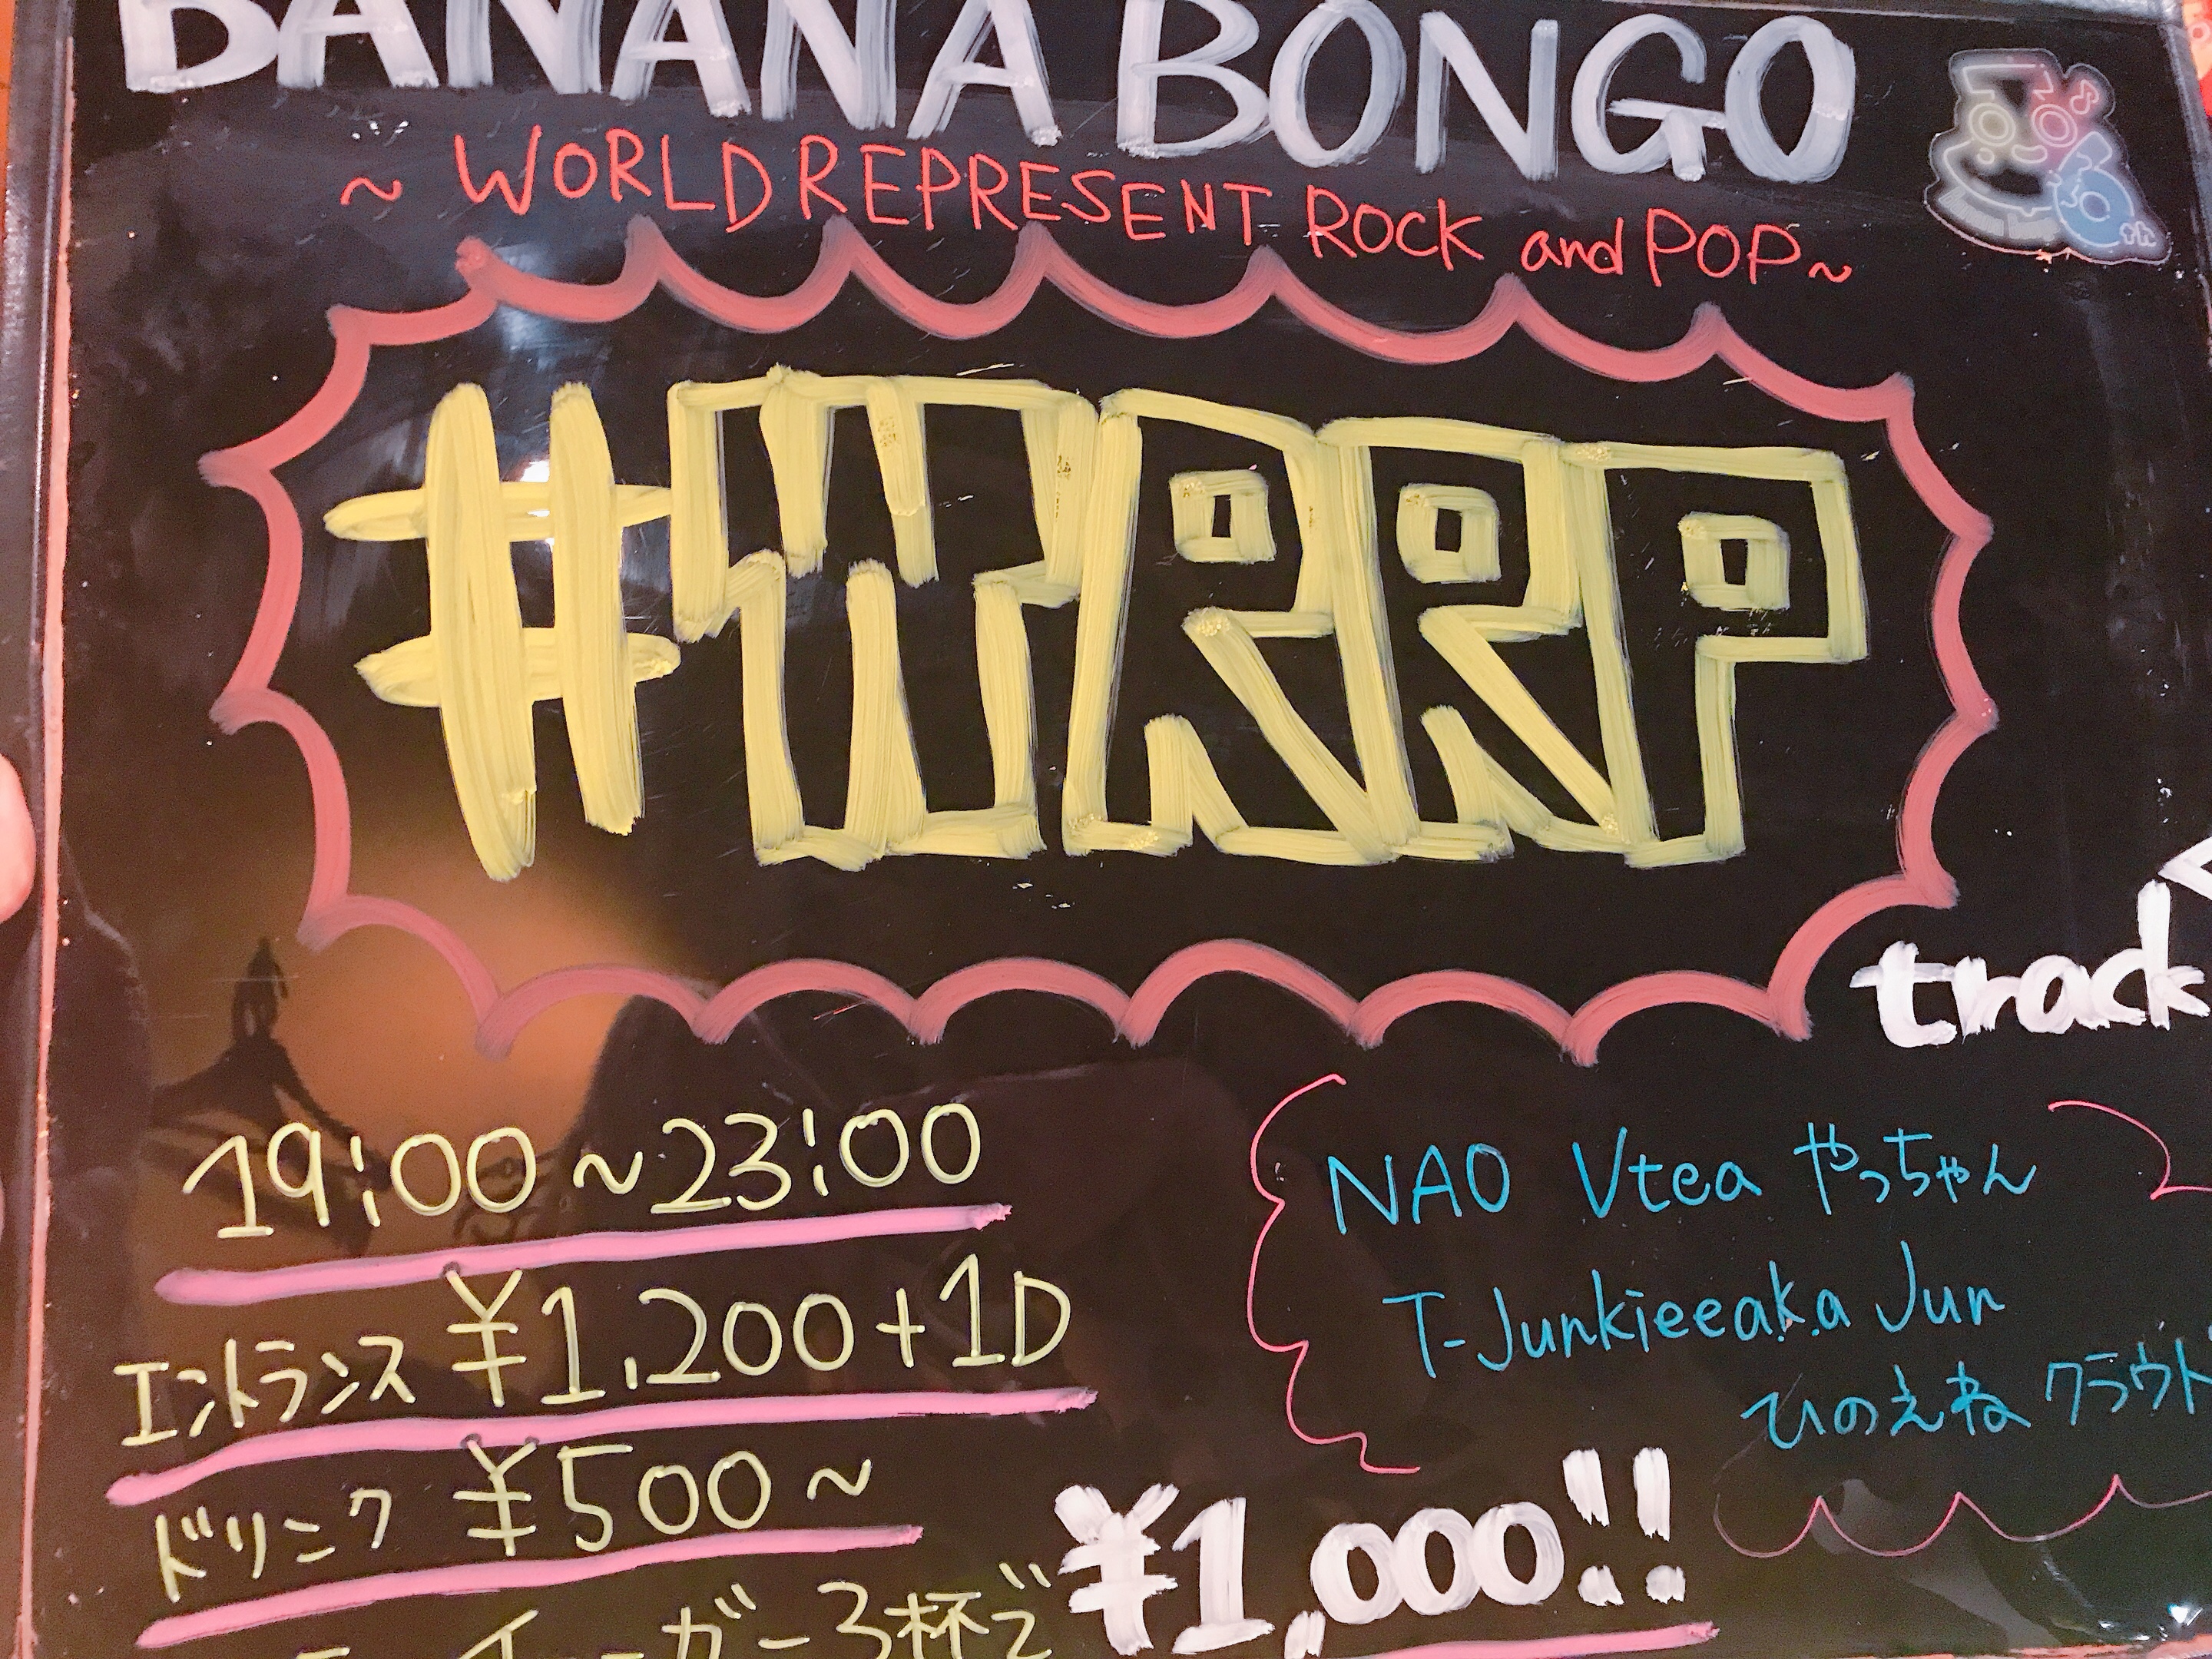 BANANA BONGO
~ WORLD REPRESENT ROCK and POP ~
#WRRP
track
19:00 ~ 23:00
エントランス ¥1,200+1D
ドリンク ¥500 ~
ガー3杯で ¥1,000!!
NAO Vtea やっちゃん
T-Junkiee a.k.a Jun
ひのえね クラウト
th